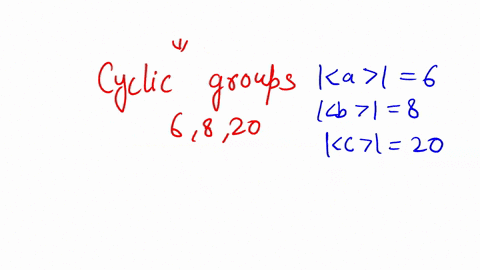 Cyclic groups
6, 8, 20
|<a>| = 6
|<b>| = 8
|<c>| = 20